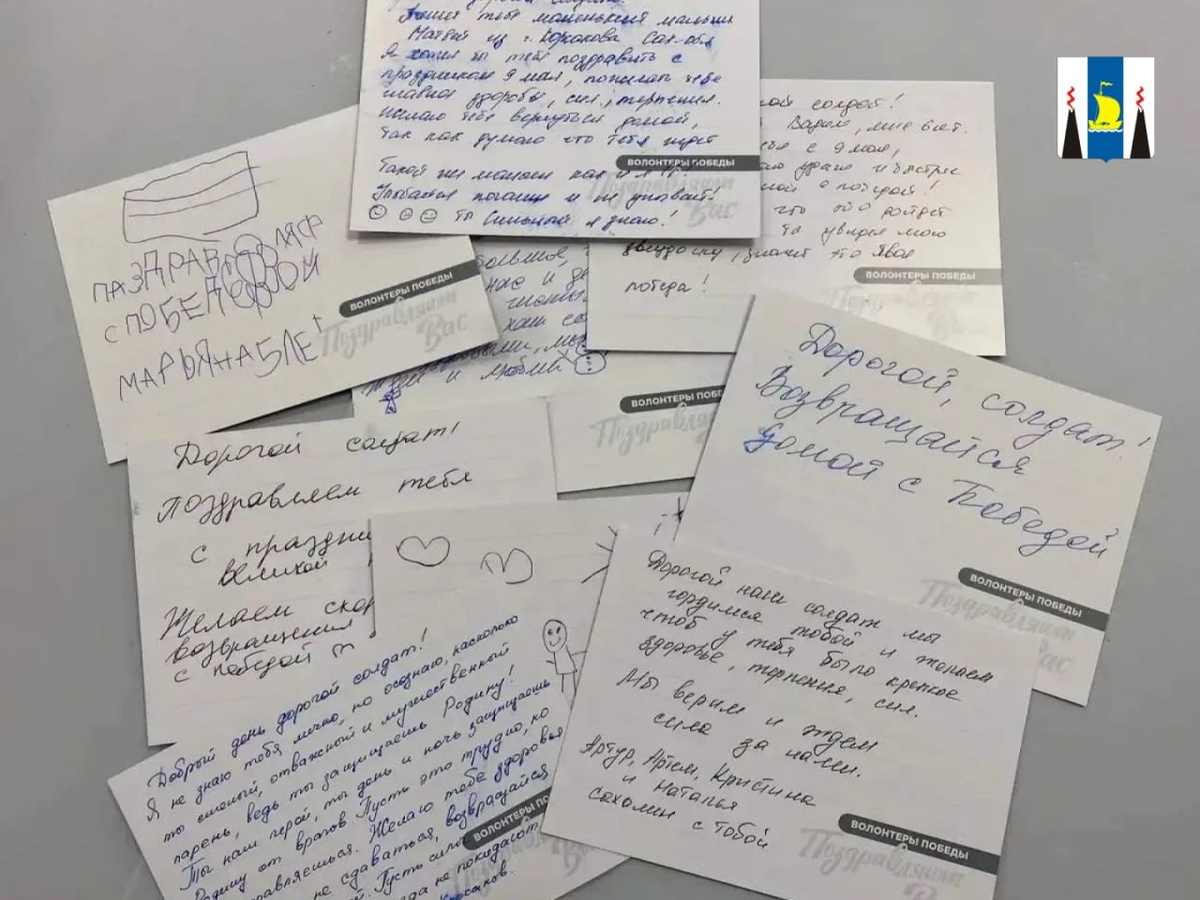 Пишет тебе маленький мальчик
Матвей из г. Корсакова Сах. обл
Я хотел бы тебя поздравить с
праздником 9 мая, пожелать тебе
главное здоровья, сил, терпения.
желаю тебе вернуться домой,
так как думаю что тебя ждет
Такой же малыш как и я
Улыбайся почаще и не унывай!
ты Сильный я знаю!
ВОЛОНТЕРЫ ПОБЕДЫ
Поздравляем
Вас
солдат!
мне 6 лет.
с 9 мая,
удачи и быстрее
с победой!
что
ты увидел мою
звездочку, значит это твоя
победа!
ВОЛОНТЕРЫ ПОБЕДЫ
Поздравляем
ПАЗДРАВ
С ПОБЕДОЙ
МАРЬЯНА 5 ЛЕТ
ВОЛОНТЕРЫ ПОБЕДЫ
Поздравляем
Вас
больше,
нас и
ждем и любим
ВОЛОНТЕРЫ ПОБЕД
Поздравля
Дорогой, солдат!
Возвращайся
домой с Победой
ВОЛОНТЕРЫ ПОБЕДЫ
Поздравляем
Вас
Дорогой солдат!
поздравляем тебя
с праздни
великой
Желаем ско
возвращения
с победой
Добрый день дорогой солдат!
Я не знаю тебя лично, но осознаю, насколько
ты сильный, отважный и мужественный
парень, ведь ты защищаешь Родину!
Ты наш герой, ты день и ночь защищаешь
Родину от врагов. Пусть это трудно, но
справляешься. Желаю тебе здоровья
не сдаваться, возвращайся
Пусть сила
не покидают
ВОЛОНТЕРЫ ПО
Дорогой наш солдат мы
гордимся тобой и желаем
чтоб у тебя было крепкое
здоровье, терпения, сил.
Мы верим и ждем
сила за нами.
Артур, Артем, Кристина
и Наталья
сахалин с тобой
ВОЛОНТЕРЫ ПОБЕДЫ
Поздравляем